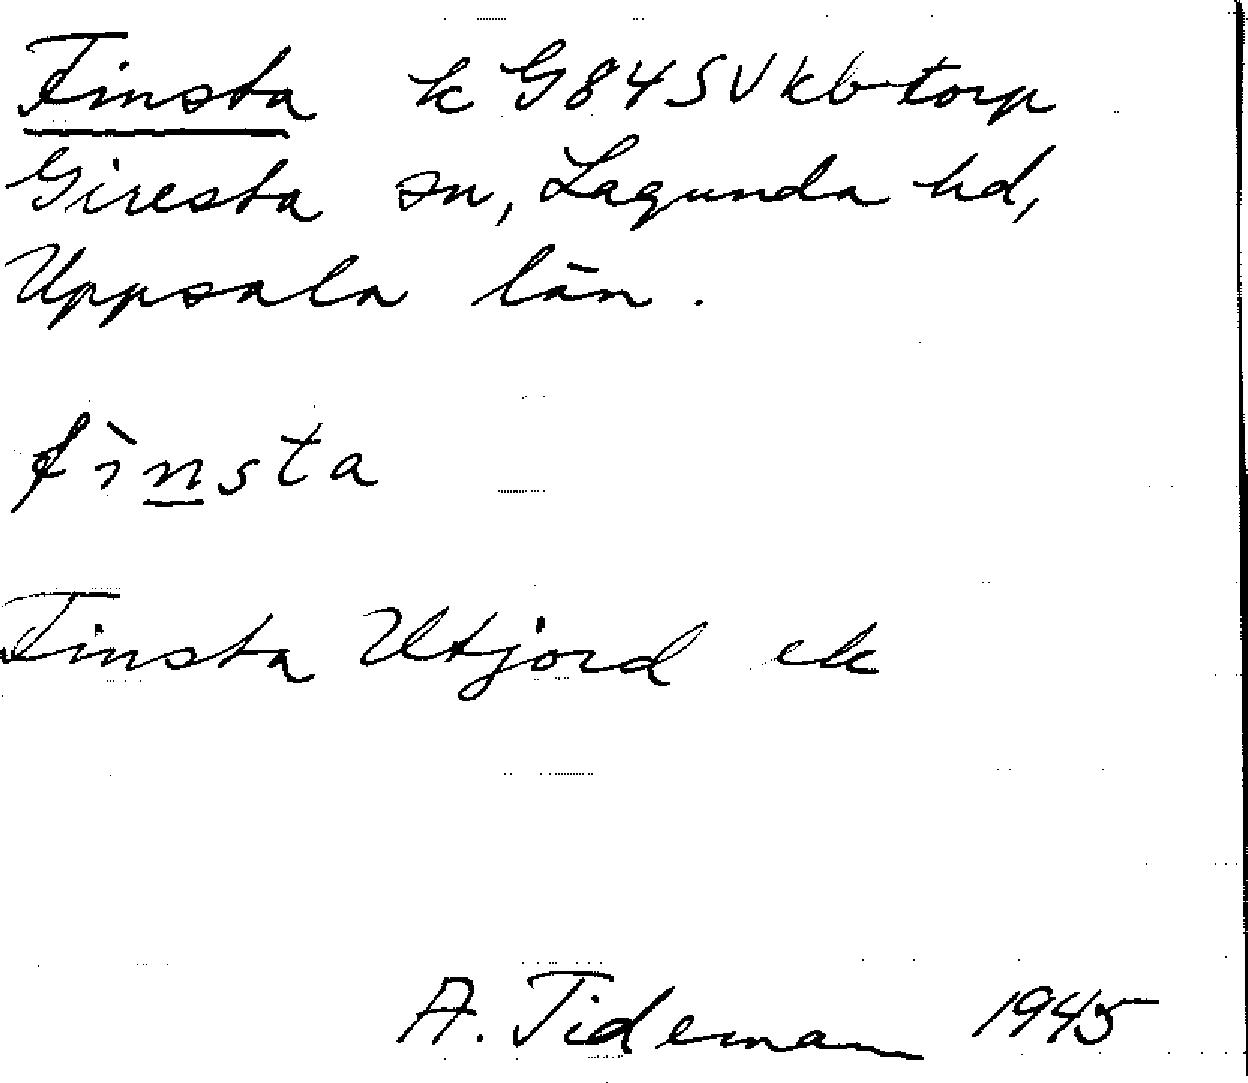 Finsta k G84SV kbtorp
Giresta sn, Lagunda hd,
Uppsala län.
fìnsta
Finsta Utjord ek
A. Tideman 1945